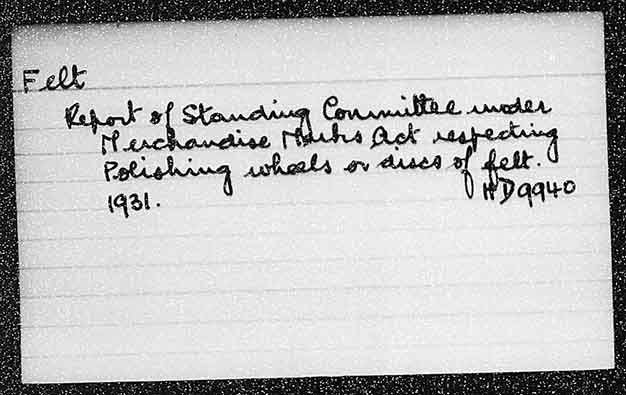 Felt
Report of Standing Committee under
Merchandise Marks Act respecting
Polishing wheels or discs of felt.
1931.
HD9940